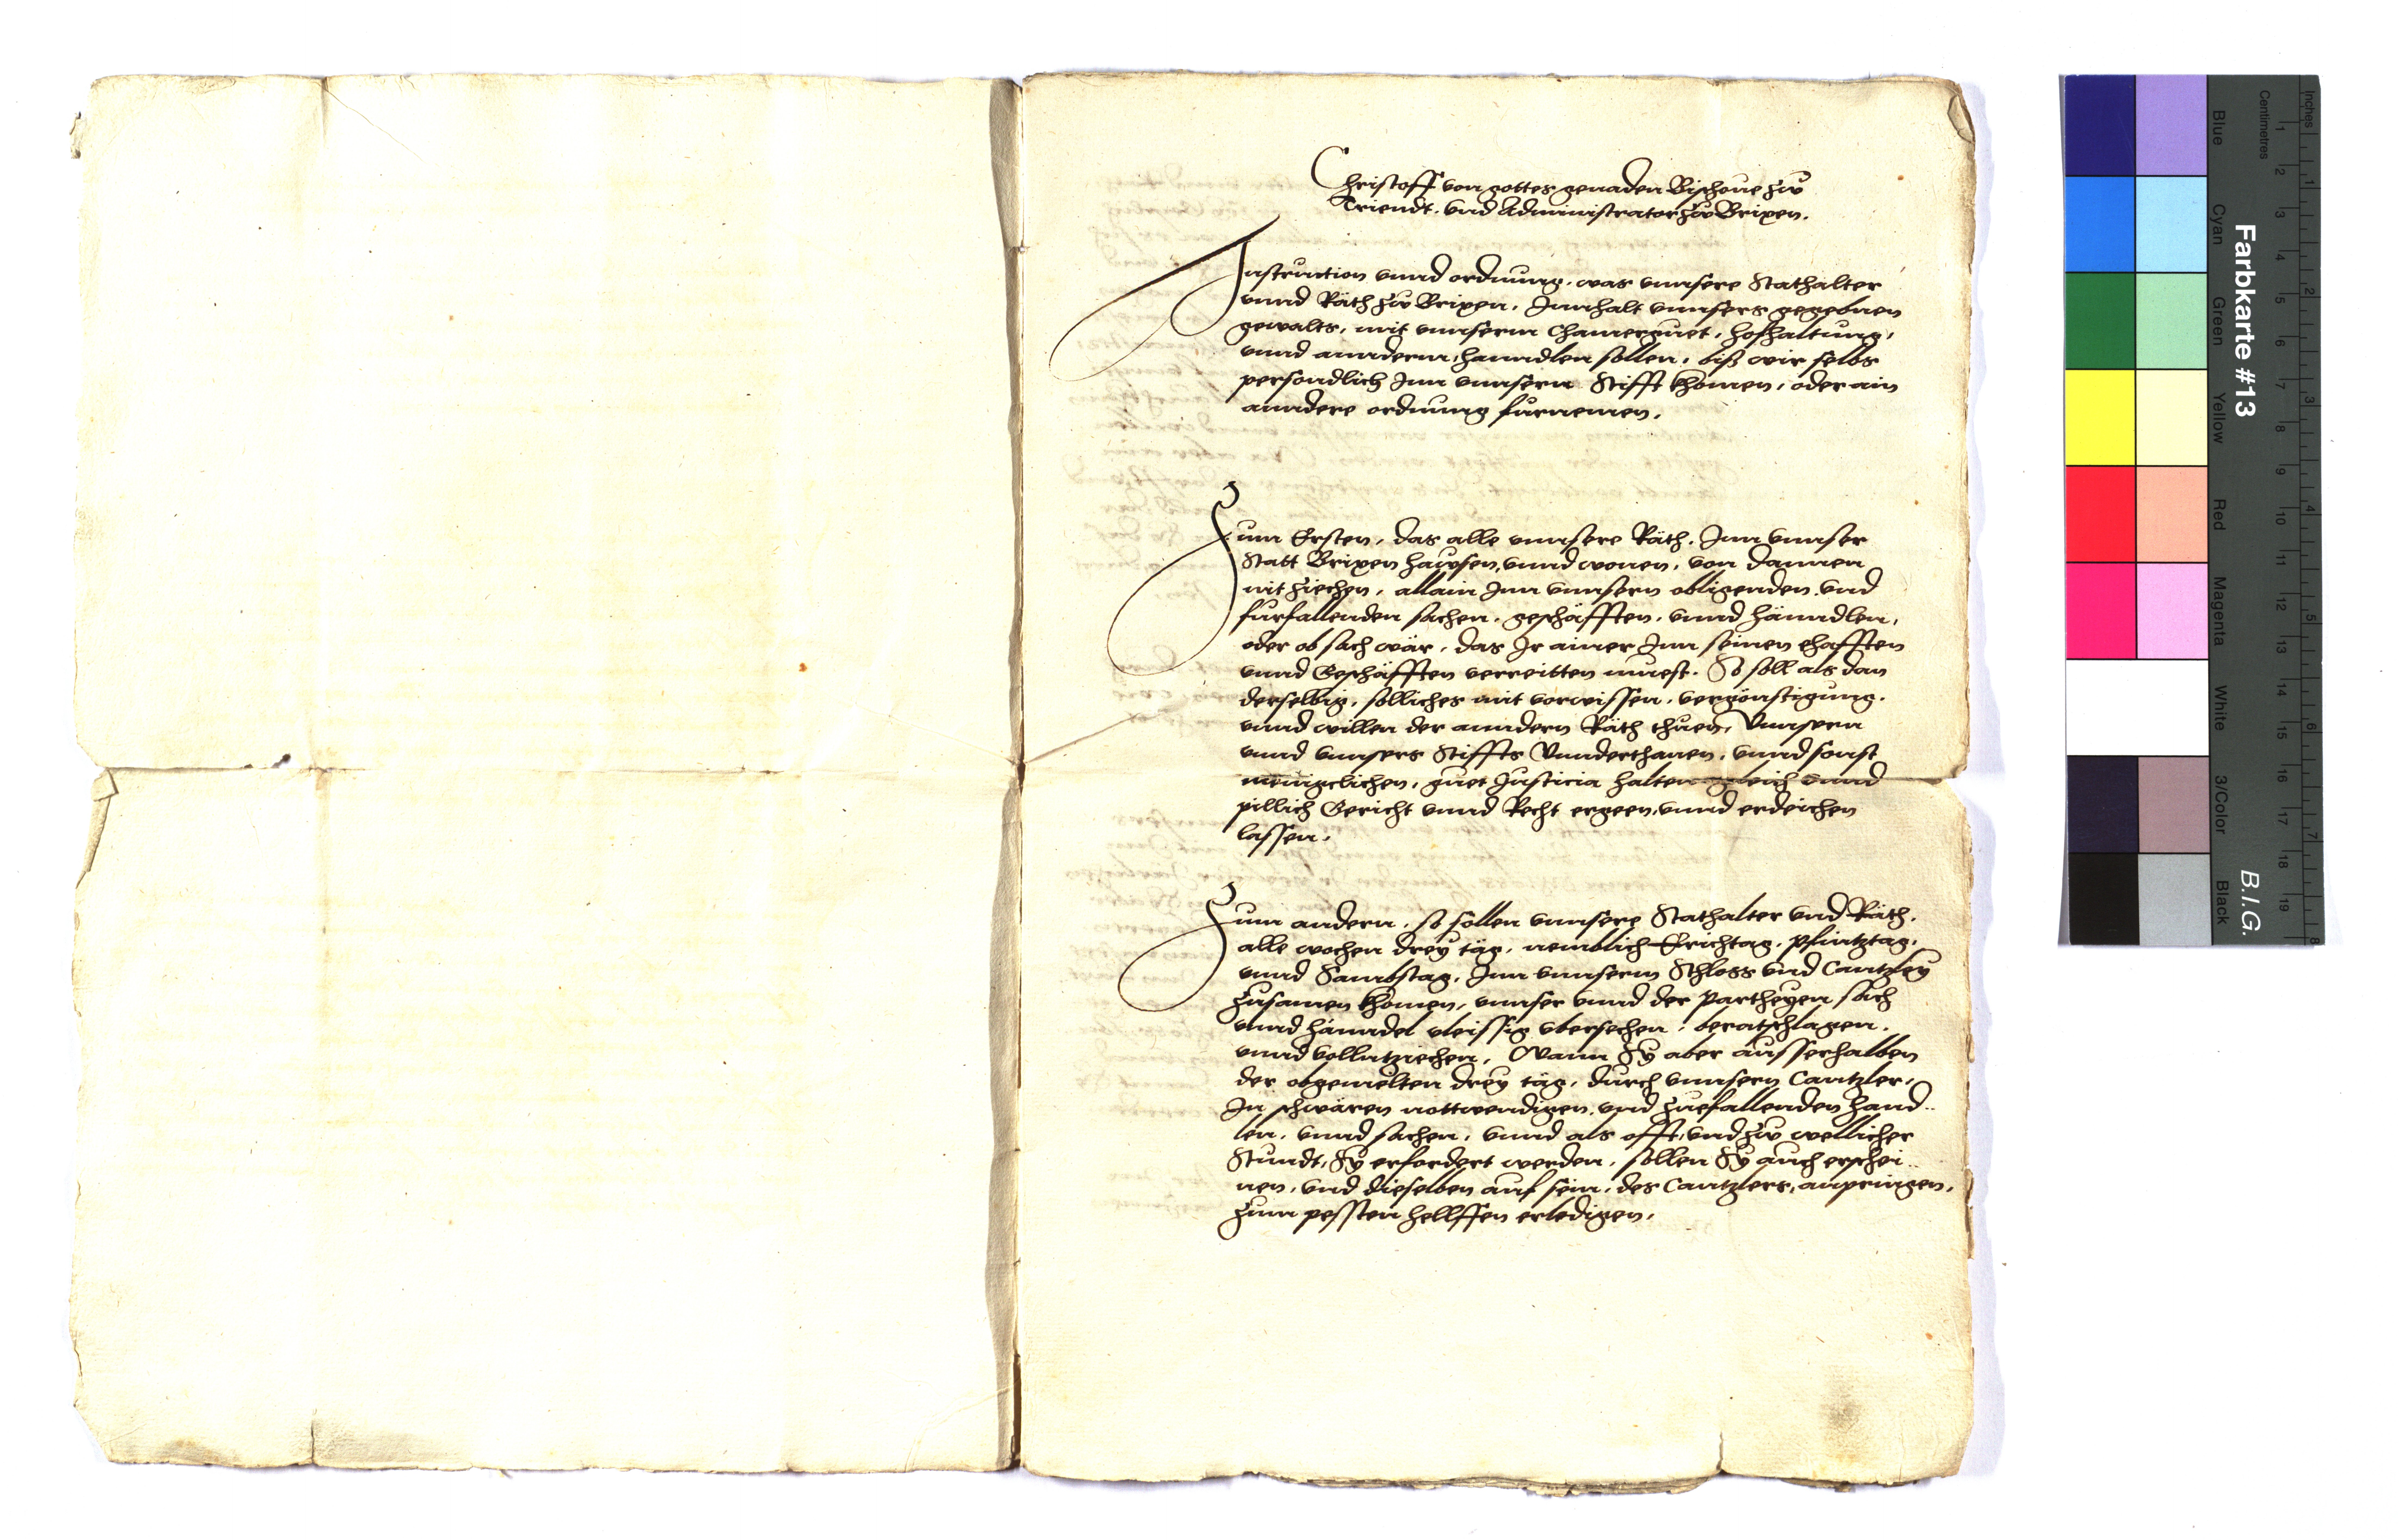 Christoff von gottes genaden Bischoue zw
Triendt. vnd Administrator zw Brixen.
Instruction vnnd ordnung, was vnnsere Stathalter
vnnd Räth zw Brixen, Innhalt vnnsers gegebnen
gewalts, mit vnnserm Chamerguet, hofhaltung,
vnnd annderm, hanndlen sollen, biß wir selbs
persondlich Inn vnnsern Stifft khomen, oder ain
anndere ordnung furnemen.
Zum Ersten, das alle vnnsere Räth, Inn vnnser
Statt Brixen hawsen, vnnd wonen, von dannen
nit ziechen, allain Inn vnnsern obligenden vnd
furfallenden sachen, geschäfften, vnnd hänndlen,
oder ob sach wär, das Ir ainer Inn seinen ehafften
vnnd Geschäfften verreitten muest. So soll als dan
derselbig, solliches mit vorwissen, vergönstigung,
vnnd willen der anndern Räth thuen, Vnnsern
vnnd vnnsers Stiffts Vnnderthanen, vnnd sonst
menigclichen, guet Justicia halten gleich vnnd
pillich Gericht vnnd Recht ergeen, vnnd erdeichen
lassen.
Zum andern, so sollen vnnsere Stathalter vnd Räth,
alle wochen drey täg, nemblich Erichtag, Pfintztag,
vnnd Sambstag, Inn vnnserm Schloss vnd Cantzley
zusamen khomen, vnnser vnnd der Partheyen sach
vnnd hänndel vleissig vbersechen, beratschlagen,
vnnd vollntziechen, Wann Sy aber ausserhalben
der obgemelten drey täg, durch vnnsern Cantzler,
In schwären nottwendigen, vnd zuefallenden hand-
len, vnnd sachen, vnnd als offt, vnd zw wellicher
Stundt, Sy erfordert werden, sollen Sy auch erschei-
nen, vnd dieselben auf sein, des Cantzlers, anpringen,
zum pessten hellffen erledigen.
Farbkarte #13
B.I.G.
Inches
Centimetres
Blue
Cyan
Green
Yellow
Red
Magenta
White
3/Color
Black
1 2 3 4 5 6 7 8 9 10 11 12 13 14 15 16 17 18 19
1 2 3 4 5 6 7 8